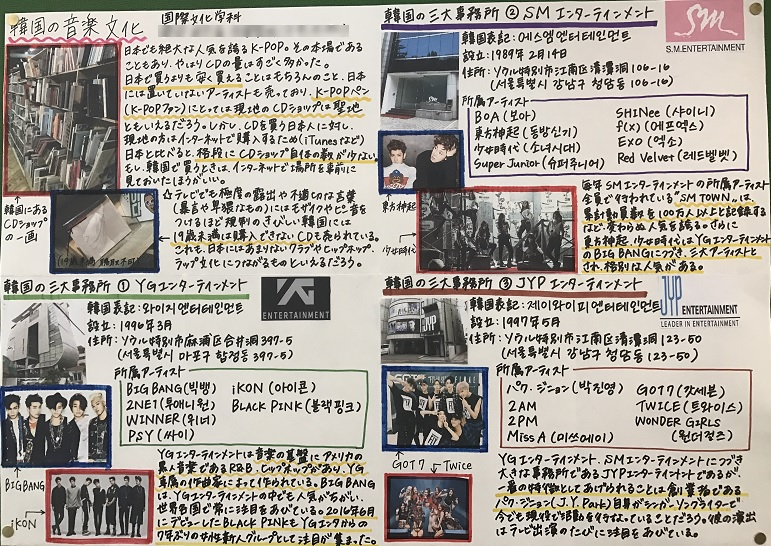 韓国の音楽文化
国際文化学科
日本でも絶大な人気を誇るK-POP。その本場である
こともあり、やはりCDの量はすごく多かった。
日本で買うよりも安く買えることはもちろんのこと、日本
には置いていないアーティストも売っており、K-POPペン
(K-POPファン)にとっては現地のCDショップは聖地
ともいえるだろう。しかし、CDを買う日本人に対し、
現地の方はインターネットで購入するため(iTunesなど)
日本と比べると、格段にCDショップ自体の数が少ない。
もし、韓国で買うときは、インターネットで場所を事前に
見ておいたほうがいい。
韓国にある
CDショップ
の一画
☆テレビでも極度の露出や不適切な言葉
(暴言や卑猥なもの)にはモザイクやピー音を
つけるほど規制のきびしい韓国には
19歳未満は購入できないCDも売られている。
これも、日本にはあまりないクラブやヒップホップ、
ラップ文化につながるものといえるだろう。
(19歳未満 購入不可)
韓国の三大事務所 ② SMエンターテインメント
S.M.ENTERTAINMENT
韓国表記:에스엠엔터테인먼트
設立:1989年2月14日
住所:ソウル特別市江南区清潭洞106-16
(서울특별시 강남구 청담동 106-16)
所属アーティスト
BoA (보아)
東方神起(동방신기)
少女時代(소녀시대)
Super Junior (슈퍼주니어)
SHINee (샤이니)
f(x) (에프엑스)
EXO (엑소)
Red Velvet (레드벨벳)
東方神起
少女時代
毎年SMエンターテインメントの所属アーティスト
全員で行われている"SMTOWN"は、
累計動員数を100万人以上と記録する
ほど変わらぬ人気を誇る。さらに
東方神起、少女時代はYGエンターテインメント
のBIGBANGにつづき、三大アーティストと
され、格別な人気がある。
韓国の三大事務所 ① YGエンターテインメント
YG
ENTERTAINMENT
韓国表記:와이지엔터테인먼트
設立:1996年3月
住所:ソウル特別市麻浦区合井洞397-5
(서울특별시 마포구 합정동 397-5)
所属アーティスト
BIGBANG(빅뱅)
2NE1(투애니원)
WINNER(위너)
PSY(싸이)
iKON(아이콘)
BLACK PINK(블랙핑크)
BIGBANG
iKON
YGエンターテインメントは音楽の基盤にアメリカの
黒人音楽であるR&B、ヒップホップがあり、YG
専属の作曲家によって作られている。BIGBANG
は、YGエンターテインメントの中でも人気がちがい、
世界各国で常に注目をあびている。2016年6月
にデビューしたBLACK PINKもYGエンタからの
7年ぶりの女性新人グループとして注目が集まった。
韓国の三大事務所 ③ JYPエンターテインメント
JYP ENTERTAINMENT
LEADER IN ENTERTAINMENT
韓国表記:제이와이피엔터테인먼트
設立:1997年5月
住所:ソウル特別市江南区清潭洞123-50
(서울특별시 강남구 청담동 123-50)
所属アーティスト
パク・ジニョン(박진영)
2AM
2PM
Miss A(미쓰에이)
GOT7(갓세븐)
TWICE(트와이스)
WONDER GIRLS
(원더걸즈)
GOT7
Twice
YGエンターテインメント、SMエンターテインメントにつづき
大きな事務所であるJYPエンターテインメントであるが、
一番の特徴としてあげられることは創業者である
パク・ジニョン(J.Y. Park)自身がシンガーソングライターで
今でも現役で活動を行なっていることだろう。彼の演出
はテレビ出演のたびに注目をあびている。